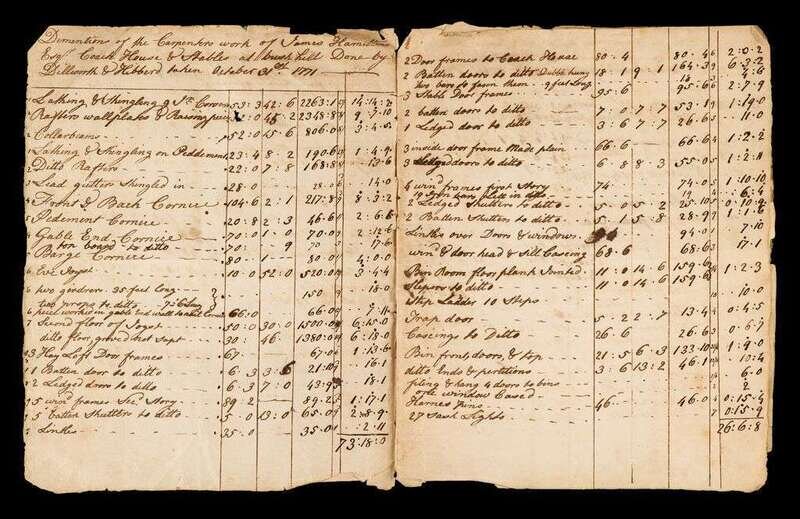 Dimentions of the Carpenters work of James Hamilton
Esqr. Coach House & Stables at bush hill Done by
Dillworth & Hibberd taken October 31st 1771
Lathing & Shingling 53:3 42:6 2263:1 14:14:2
Rafters wallplates & Raising 2348:8 9:7:10
Collarbeams 52:0 806:0 3:4:5
Lathing & Shingling on Peddement 23:4 8:2 190:6 1:4:9
Ditto Rafters 22:0 7:8 168:8 13:6
Lead gutters Shingled in 28:0 28:0 14:0
Front & Back Cornice 104:6 2:1 217:8 8:3:2
Pidement Cornice 20:8 2:3 46:6 2:6:8
Gable End Cornice 70:0 1:0 70:0 2:12:6
ton board to ditto 70: 9 70 17:6
Barge Cornice 80:1 80:0 4:0:0
Eve Joyst 10:0 52:0 520:0 3:4:4
two girders 35 feet long 150 18:0
two props to ditto
66:0 66:0 7:11
Second floor of Joyst 50:0 30:0 1500:0 6:15:0
ditto floor, groved 30: 46 1380:0 6:18:0
3 Hay Loft Door frames 67: 67:0 1:13:6
1 Batten door to ditto 6:3 3:6 21:10 16:1
2 Ledged doors to ditto 6:3 7:0 43:9 18:1
5 win frames Sec Story 89:2 89:2 1:17:1
5 batten Shutters to ditto 5:0 13:0 65:0 2:8:9
Lintles 35:0 35:0 2:11
73:18:0
2 Door frames to Coach House 80:4 80:4 2:0:2
2 Batten doors to ditto Double hung 18:1 9:1 164:3 6:3:2
two bars to fasten them 9 feet Long 4:6
3 Stable Door frames 95:6 95:6 2:7:9
2 batten doors to ditto 7:0 7:7 53:1 1:19:0
1 Ledged door to ditto 3:6 7:7 26:6 11:0
3 inside door frame Made plain 66:6 66:6 1:2:2
3 Ledged doors to ditto 6:8 8:3 55:0 1:2:11
win frames first Story 74 74:0 1:10:10
Iron bars plett in ditto 6:4
2 Ledged Shutters to ditto 5:0 5:2 25:10 0:10:9
2 Batten Shutters to ditto 5:1 5:8 28:9 1:1:6
Lintles over Doors & windows 94:0 7:10
win & door head & Sill Caseing 68:6 68:6 17:1
Bin Room floor plank Jointed 11:0 14:6 159:6 1:2:3
Sleepers to ditto 11:0 14:6 159:6
Step Ladder 10 Steps 10:0
Trap door 5:2 2:7 13:4 0:4:5
Caseings to Ditto 26:6 26:6 0:6:7
Bin front, doors, & top 21:5 6:3 133:10 1:9:0
ditto Ends & partitions 3:6 13:2 46:1 10:4
& hang 4 doors to bins 6:0
window Cased 2
Harnes pins 46 46:0 0:15:4
27 Sash Lights 0:15:9
26:6:8